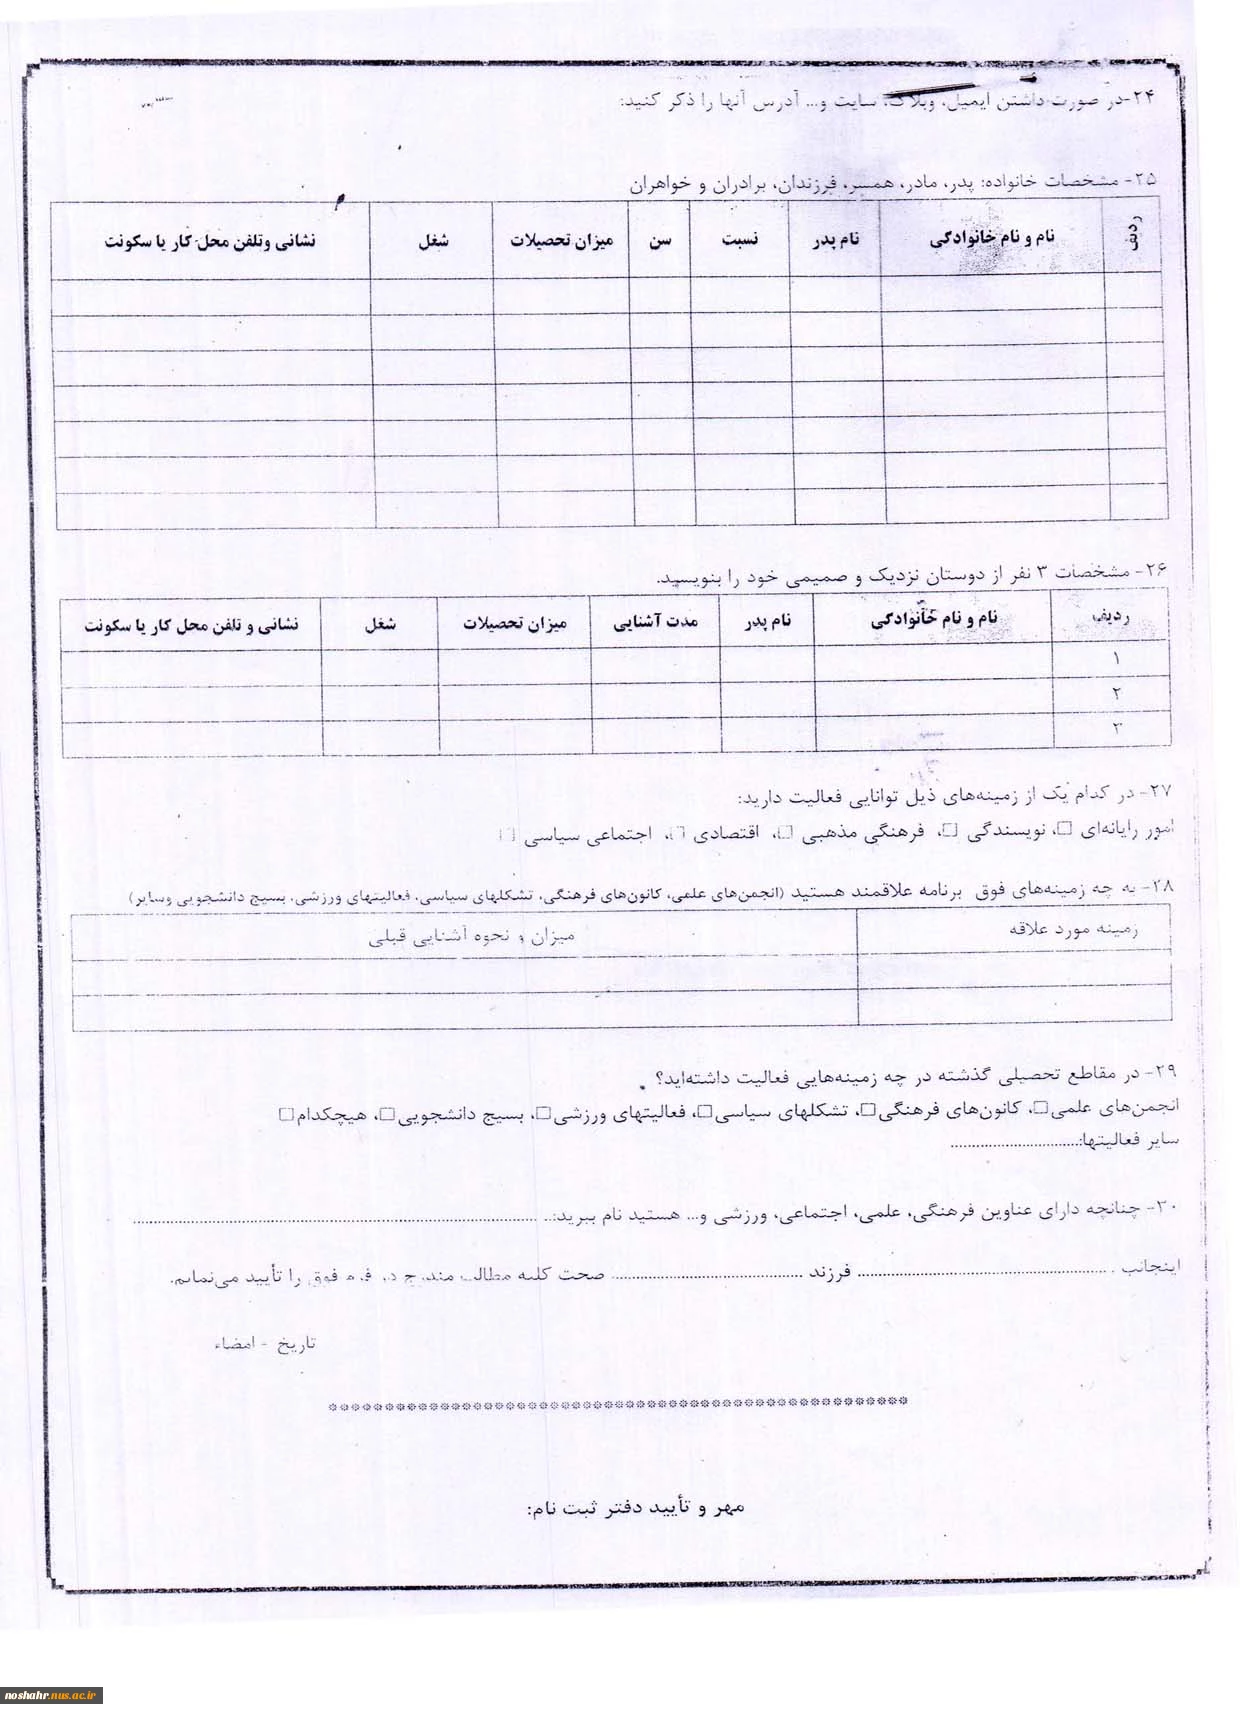 ۲۴-در صورت داشتن ایمیل، وبلاگ، سایت و... آدرس آنها را ذکر کنید:
۲۵- مشخصات خانواده: پدر، مادر، همسر، فرزندان، برادران و خواهران
ردیف نام و نام خانوادگی نام پدر نسبت سن میزان تحصیلات شغل نشانی وتلفن محل کار یا سکونت
۲۶- مشخصات ۳ نفر از دوستان نزدیک و صمیمی خود را بنویسید.
ردیف نام و نام خانوادگی نام پدر مدت آشنایی میزان تحصیلات شغل نشانی و تلفن محل کار یا سکونت
۱
۲
۳
۲۷- در کدام یک از زمینه‌های ذیل توانایی فعالیت دارید:
امور رایانه‌ای □، نویسندگی □، فرهنگی مذهبی □، اقتصادی □، اجتماعی سیاسی □
۲۸- به چه زمینه‌های فوق برنامه علاقمند هستید (انجمن‌های علمی، کانون‌های فرهنگی، تشکلهای سیاسی، فعالیتهای ورزشی، بسیج دانشجویی وسایر)
زمینه مورد علاقه میزان و نحوه آشنایی قبلی
۲۹- در مقاطع تحصیلی گذشته در چه زمینه‌هایی فعالیت داشته‌اید؟
انجمن‌های علمی□، کانون‌های فرهنگی□، تشکلهای سیاسی□، فعالیتهای ورزشی□، بسیج دانشجویی□، هیچکدام□
سایر فعالیتها:..............................
۳۰- چنانچه دارای عناوین فرهنگی، علمی، اجتماعی، ورزشی و... هستید نام ببرید:..............................
اینجانب .............................. فرزند .............................. صحت کلیه مطالب مندرج در فرم فوق را تأیید می‌نمایم.
تاریخ - امضاء
مهر و تأیید دفتر ثبت نام:
noshahr.nus.ac.ir